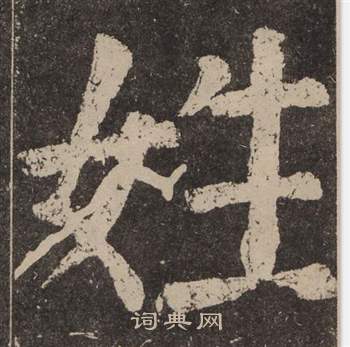 姓
词典网